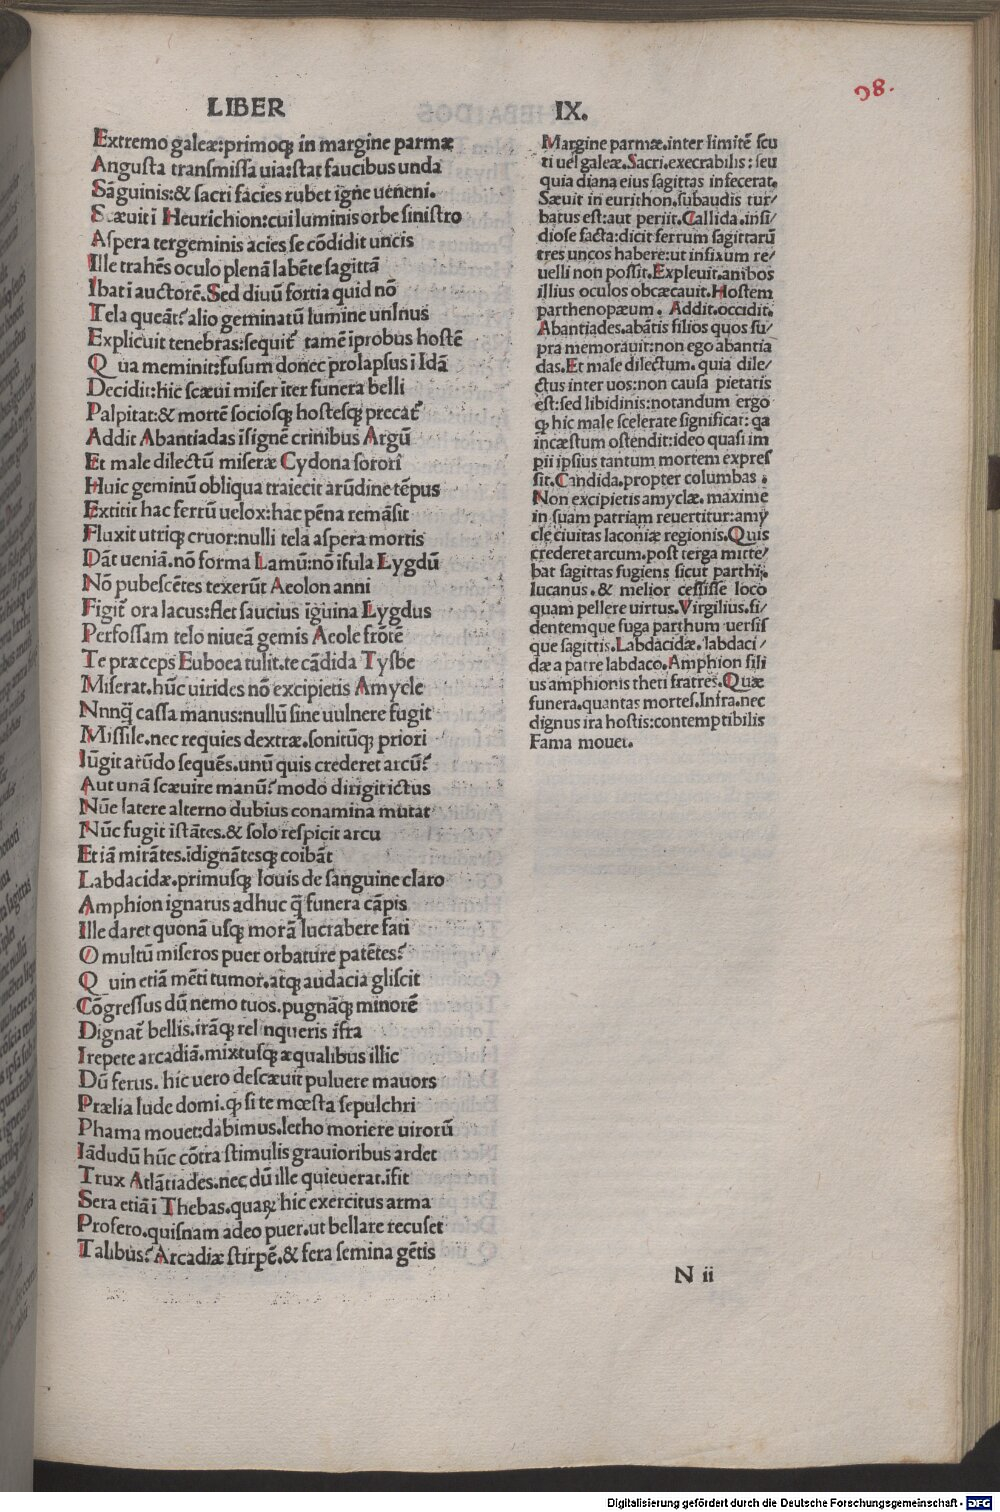 LIBER IX.
98.
Extremo galeæ:primoqꝫ in margine parmæ
Angusta transmissa uia:stat faucibus unda
Sãguinis:& sacri facies rubet igne ueneni.
Scæuit ĩ Heurichion:cui luminis orbe sinistro
Aspera tergeminis acies se cõdidit uncis
Ille trahẽs oculo plenã labẽte sagittã
Ibat ĩ auctorẽ.Sed diuũ fortia quid nõ
Tela queãt:̃ alio geminatũ lumine uulnus
Explicuit tenebras:sequit̃ tamẽ iprobus hostẽ
Q ua meminit:fusum donec prolapsus ĩ Idã
Decidit:hic scæui miser iter funera belli
Palpitat:& mortẽ sociosqꝫ hostesqꝫ precat̃
Addit Abantiadas ĩsignẽ crinibus Argũ
Et male dilectũ miseræ Cydona sorori
Huic geminũ obliqua traiecit arũdine tẽpus
Extitit hac ferrũ uelox:hac pẽna remãsit
Fluxit utriqꝫ cruor:nulli tela aspera mortis
Dãt ueniã.nõ forma Lamũ:nõ ĩsula Lygdũ
Nõ pubescẽtes texerũt Aeolon anni
Figit̃ ora lacus:flet saucius iguina Lygdus
Perfossam telo niueã gemis Aeole frõtẽ
Te præceps Euboea tulit.te cãdida Tysbe
Miserat.hũc uirides nõ excipietis Amycle
Nnnq̃ cassa manus:nullũ sine uulnere fugit
Missile.nec requies dextræ.sonitũqꝫ priori
Iũgit arũdo sequẽs.unũ quis crederet arcũ:̃
Aut unã scæuire manũ:̃ modo dirigit ictus
Nũc latere alterno dubius conamina mutat
Nũc fugit ĩstãtes.& solo respicit arcu
Et iã mirãtes.ĩdignãtesqꝫ coibãt
Labdacidæ.primusqꝫ Iouis de sanguine claro
Amphion ignarus adhuc q̃ funera cãpis
Ille daret quonã usqꝫ morã lucrabere fati
O multũ miseros puer orbature patẽtes:̃
Q uin etiã mẽti tumor.atqꝫ audacia gliscit
Cõgressus dũ nemo tuos.pugnãqꝫ minorẽ
Dignat̃ bellis.irãqꝫ relinqueris ĩfra
I repete arcadiã.mixtusqꝫ æqualibus illic
Dũ ferus. hic uero descæuit puluere mauors
Prælia lude domi.qꝫ si te mœsta sepulchri
Phama mouet:dabimus.letho moriere uirorũ
Iãdudũ hũc cõtra stimulis grauioribus ardet
Trux Atlãtiades.nec dũ ille quieuerat.ĩfit
Sera etiã ĩ Thebas.quaꝝ hic exercitus arma
Profero.quisnam adeo puer.ut bellare recuset
Talibus:̃ Arcadiæ stirpẽ.& fera semina gẽtis
Margine parmæ.inter limitẽ scu
ti uel galeæ.Sacri.execrabilis:seu
quia diana eius sagittas infecerat.
Sæuit in eurithon.subaudis tur/
batus est:aut periit.Callida.insi/
diose facta:dicit ferrum sagittarũ
tres uncos habere:ut infixum re/
uelli non possit.Expleuit.anibos
illius oculos obcæcauit.Hostem
parthenopæum. Addit.occidit.
Abantiades.abãtis filios quos su/
pra memorauit:non ego abantia
das.Et male dilectum.quia dile/
ctus inter uos:non causa pietatis
est:sed libidinis:notandum ergo
qꝫ hic male scelerate significat:qa
incæstum ostendit:ideo quasi im
pii ipsius tantum mortem expres
sit.Candida.propter columbas.
Non excipietis amyclæ.maxime
in suam patriam reuertitur:amy
cle ciuitas laconiæ regionis.Quis
crederet arcum.post terga mitte/
bat sagittas fugiens sicut parthi.
lucanus.& melior cessisse loco
quam pellere uirtus.Virgilius.fi/
dentemque fuga parthum uersis
que sagittis.Labdacidæ.labdaci/
dæ a patre labdaco.Amphion fili
us amphionis theti fratres.Quæ
funera.quantas mortes.Infra.nec
dignus ira hostis:contemptibilis
Fama mouet.
N ii
Digitalisierung gefördert durch die Deutsche Forschungsgemeinschaft - DFG